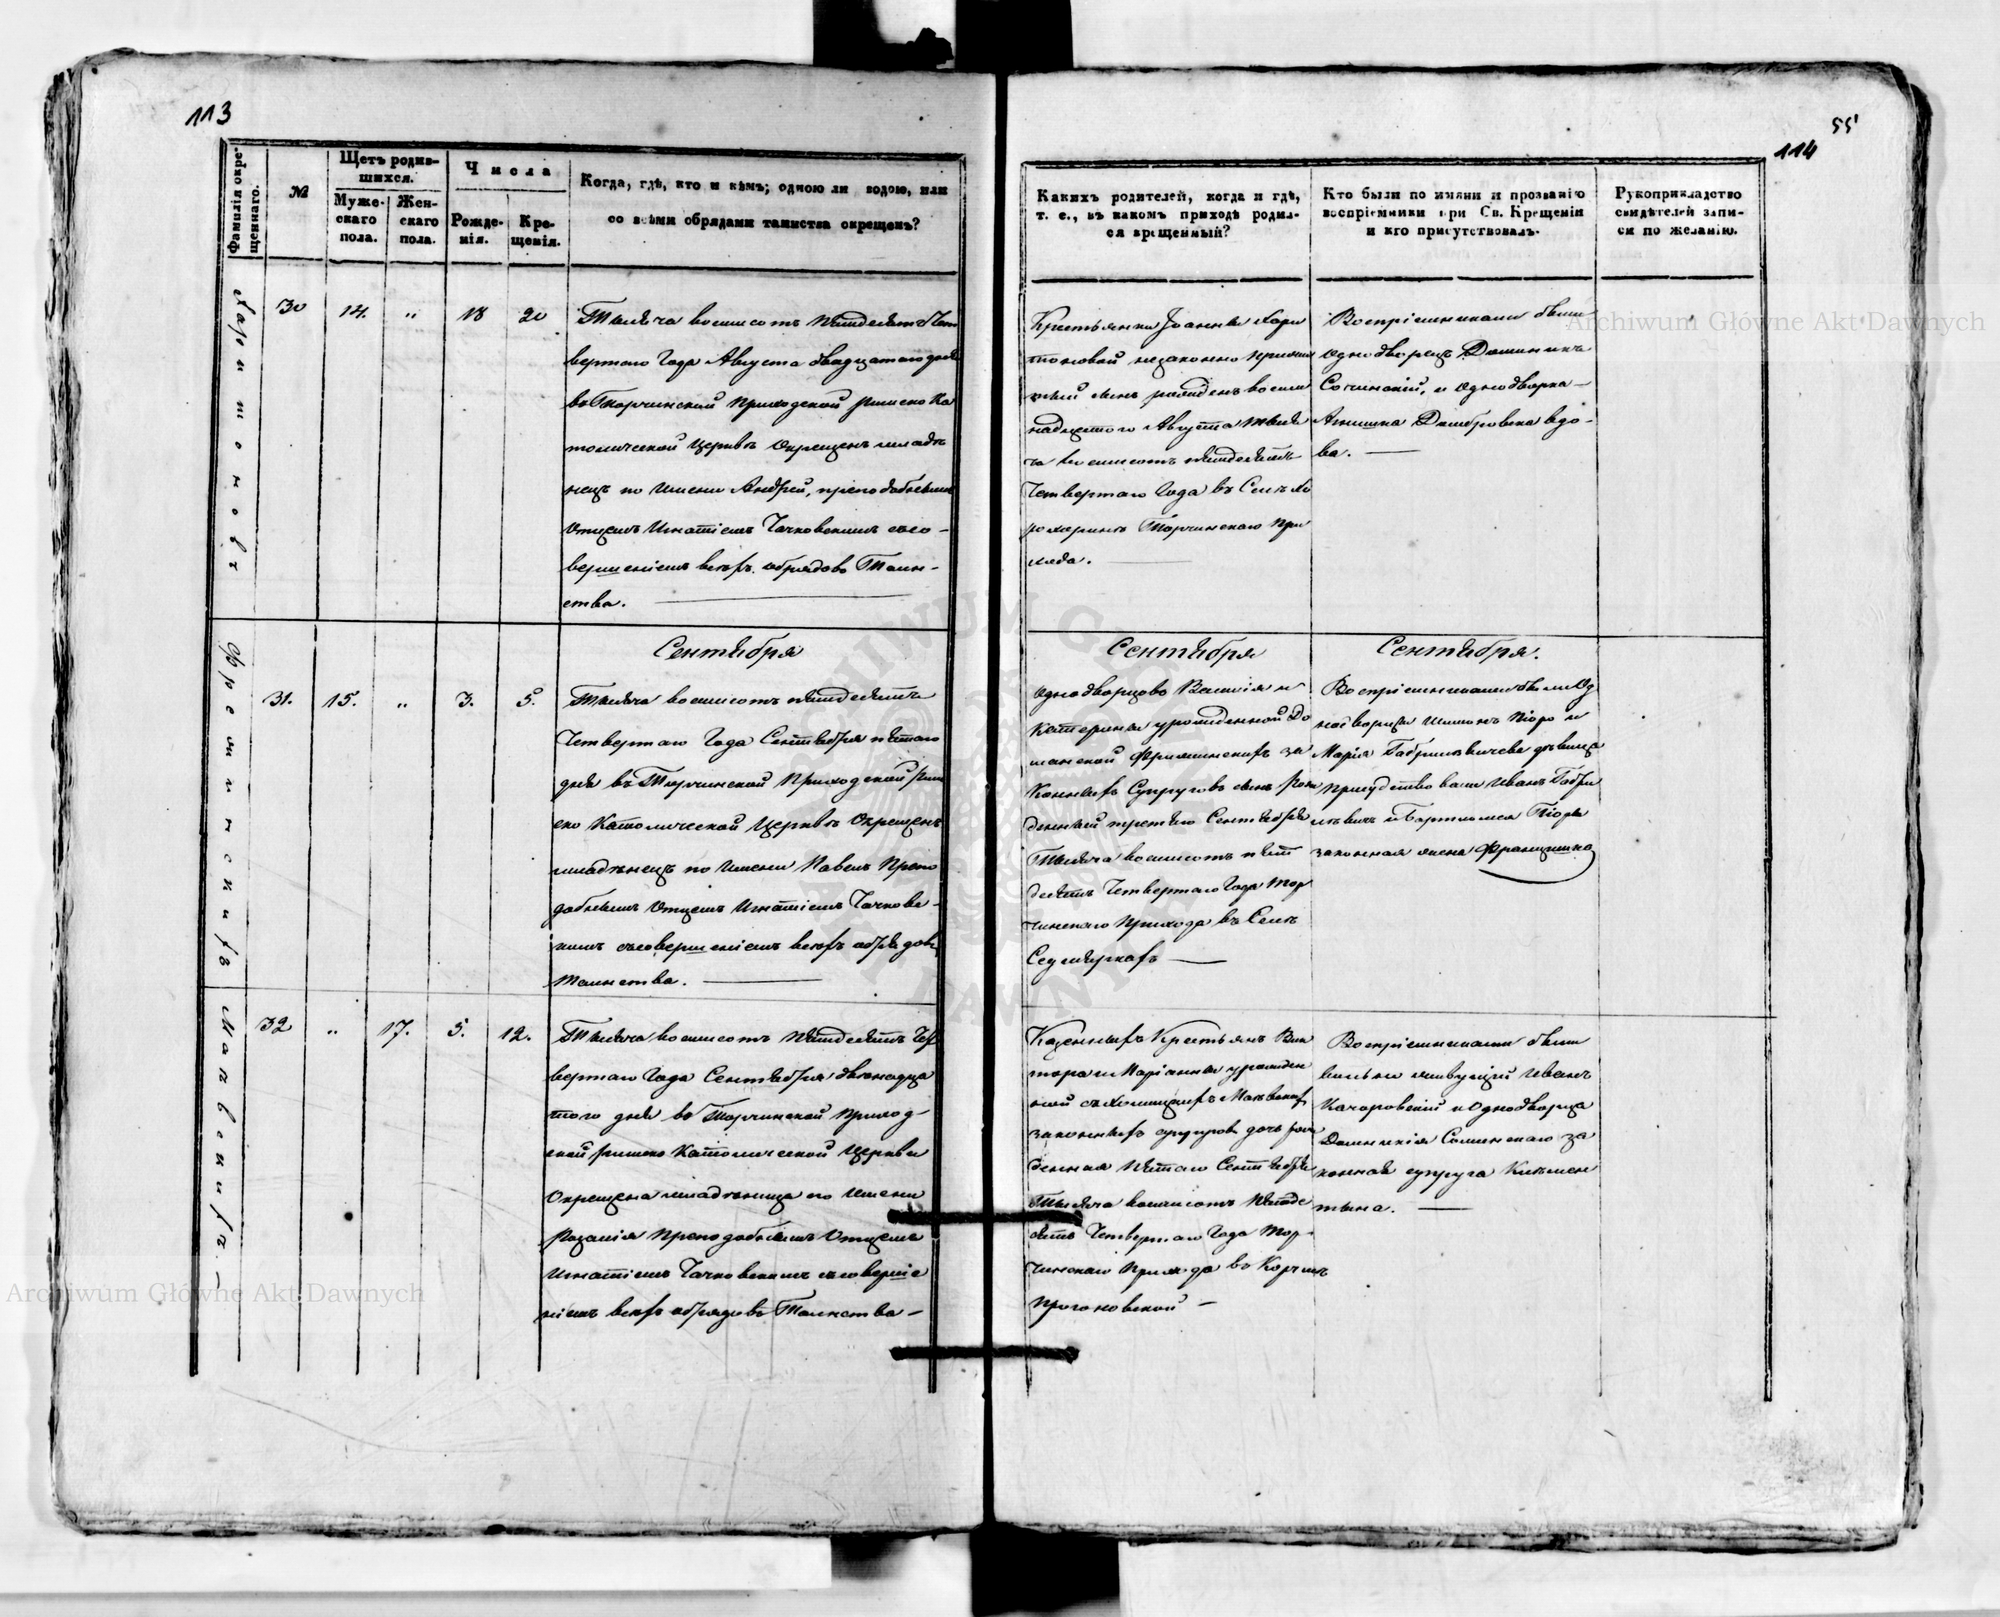 113
Фамилія окре-
щеннаго.
№
Щетъ родив-
шихся.
Муже-
скаго
пола.
Жен-
скаго
пола.
Числа
Рожде-
нія.
Кре-
щенія.
Когда, гдѣ, кто и кѣмъ; одною ли водою, или
со всѣми обрядами таинства окрещенъ?
Харитоновъ
30
14.
"
18
20
Тысяча восемсотъ пятдесятъ Чет
вертаго Года Августа двадцатаго дня
въ Торчинской Приходской Римско Ка
толической Церквѣ Окрещенъ младѣ
нецъ по Имени Андрей, преподобнымъ
Отцемъ Игнатіемъ Чачковскимъ съсо-
вершеніемъ всѣхъ обрядовъ Таин-
ства.
Сентября
31.
15.
"
3.
5.
Тысяча восемсотъ пятдесятъ
Четвертаго Года Сентября пятаго
дня въ Торчинской Приходской Рим
ско Католической Церквѣ Окрещенъ
младѣнецъ по Имени Павелъ Препо
добнымъ Отцемъ Игнатіемъ Чачковс-
кимъ съсовершеніемъ всѣхъ обрядовъ
Таинства.
32
"
17.
5.
12.
Тысяча восемсотъ Пятдесятъ Чет
вертаго Года Сентября двенадца
таго дня въ Торчинской Приход-
ской Римско Католической Церкви
Окрещена младѣница по Имени
Розалія Преподобнымъ Отцемъ
Игнатіемъ Чачковскимъ съсоверше
ніемъ всѣхъ обрядовъ Таинства-
55
114
Какихъ родителей, когда и гдѣ,
т. е., въ какомъ приходѣ родил-
ся крещенный?
Кто были по имяни и прозванію
воспріемники при Св. Крещеніи
и кто присутствовалъ.
Рукоприкладство
свидѣтелей запи-
си по желанію.
Крестьянки Іоанны Хари
тоновой незаконно
сынъ рожденъ восем
надцатого Августа тыся
ча восемсотъ пятдесятъ
Четвертаго Года въ Селѣ
Торчинскаго При
хода.
Воспріемниками были
Однодворецъ Доминикъ
Сочинскій, и Однодворка-
Домбровска вдо-
ва.
Сентября
Однодворцовъ и
Катерины урожденной До
манской за
Конныхъ Супруговъ сынъ Рож
денный третьго Сентября
Тысяча восемсотъ пят
десятъ Четвертаго Года Тор
чинскаго Прихода въ Селѣ
Седмяркахъ
Сентября.
Воспріемниками были Од
нодворцы Шимонъ Піоро и
Марія дѣвица
Присудствовали Иванъ Габри
левичъ и Бартломея Піора
законная жена Францишка
Казенныхъ Крестьянъ Вик
тора и Маріанны урожден
ной
законныхъ супруговъ дочь рож
денная Пятаго Сентября
Тысяча восемсотъ Пятде
сятъ Четвертаго Года Тор-
чинскаго Прихода въ Корчмѣ
Прогоновской -
Воспріемниками были
вольно живущій Иванъ
Качоровскій и Однодворца
за
конная супруга Клемен
тина.
Archiwum Główne Akt Dawnych
Archiwum Główne Akt Dawnych
ARCHIWUM GŁÓWNE AKT DAWNYCH